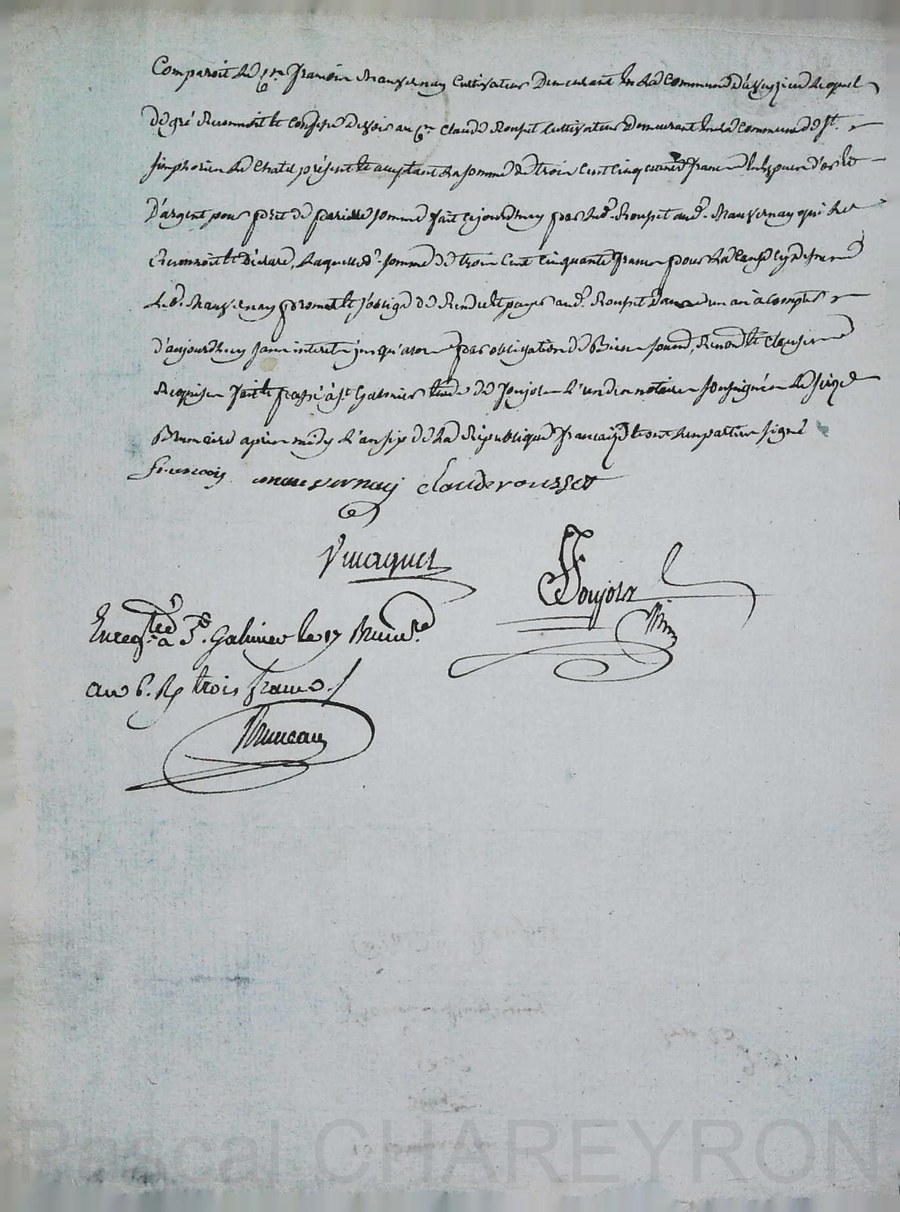 Comparoit le Cen francois Mauvernay Cultivateur Demeurant en la commune d'aveyzieu lequel
de gré Reconnoit et confesse Devoir au Cen Claude Rousset Cultivateur Demeurant en la commune de St.
simphorien le Chatel présent et acceptant la somme de trois cent cinquante francs En Espèces d'or et
D'argent pour prêt de pareille somme fait cejourdhuy par led. Rousset aud. Mauvernay qui le
Reconnoit et Déclare, laquelle d. somme de trois cent cinquante francs pour la cause cydessus
led. Mauvernay promet et s'oblige de Rendre et payer aud. Rousset Dans un an à compter
d'aujourdhuy sans interet jusqu'alors par obligation de Biens soumis, Renond et clauses
Requises fait et passé à St Galmier Etude de Joujols l'un des notaires soussignés le seize
Brumaire après midy l'an six de la République française et ont les parties signé
francois mauvernay claude rousset
Joujols
Enregtré à St. Galmier le 17 Brumre
an 6. R trois francs
Bruneau
Pascal CHAREYRON